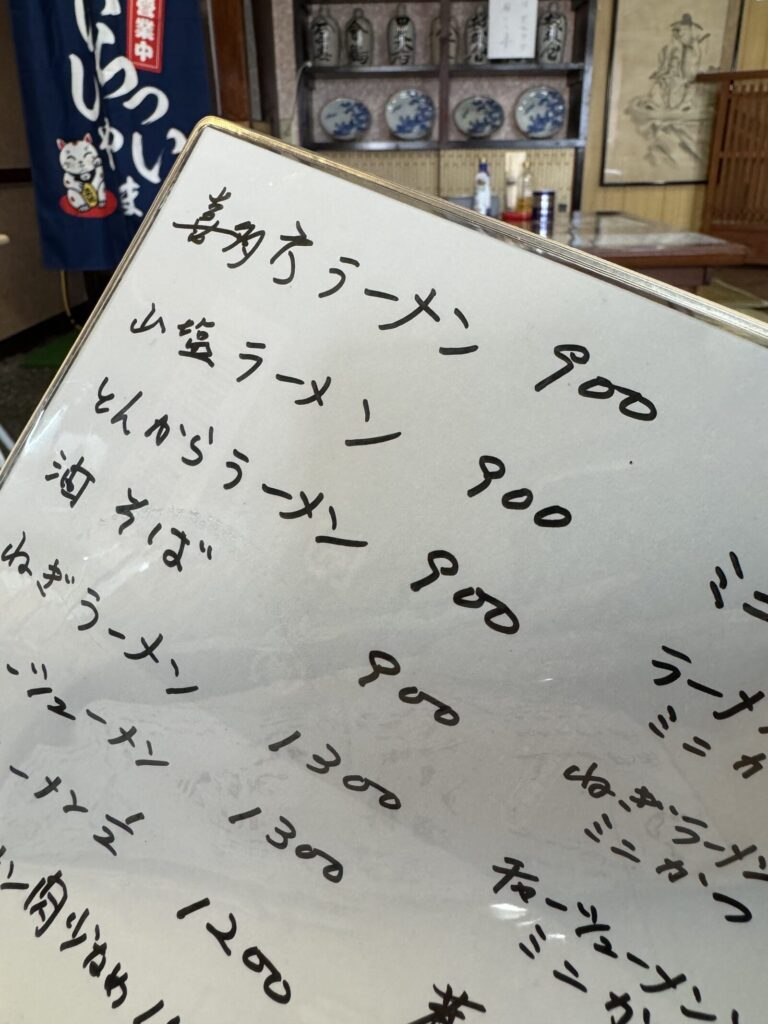 営業中
いらっしゃいま
喜多方ラーメン 900
山塩ラーメン 900
とんからラーメン 900
油そば 900
ねぎラーメン 1300
ジューメン 1300
ーメン½ 1200
ン肉少なめ
ミニ
ラーメン
ミニカ
ねぎラーメン
ミニかつ
チャージューメン
ミニか